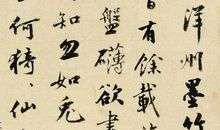 洋州墨竹
有餘載
盤礴欲書
知忽如兔
何猗仙